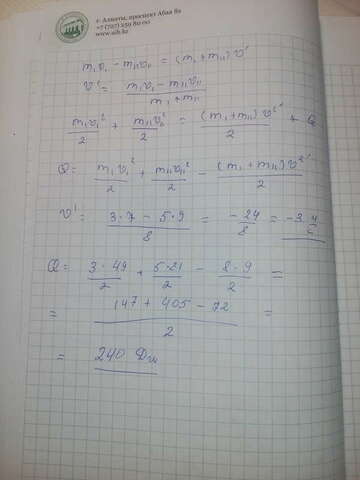 г. Алматы, проспект Абая 8а
+7 (727) 259 80 00
www.aih.kz
m₁v₁ - m₁₁v₁₁ = (m₁ + m₁₁) v'
v' = (m₁v₁ - m₁₁v₁₁) / (m₁ + m₁₁)
m₁v₁²/2 + m₁₁v₁₁²/2 = (m₁ + m₁₁) v²'/2 + Q
Q = m₁v₁²/2 + m₁₁v₁₁²/2 - (m₁ + m₁₁) v²'/2
v' = (3·7 - 5·9)/8 = -24/8 = -3 м/с
Q = 3·49/2 + 5·81/2 - 8·9/2 =
= (147 + 405 - 72)/2 =
= 240 Дж